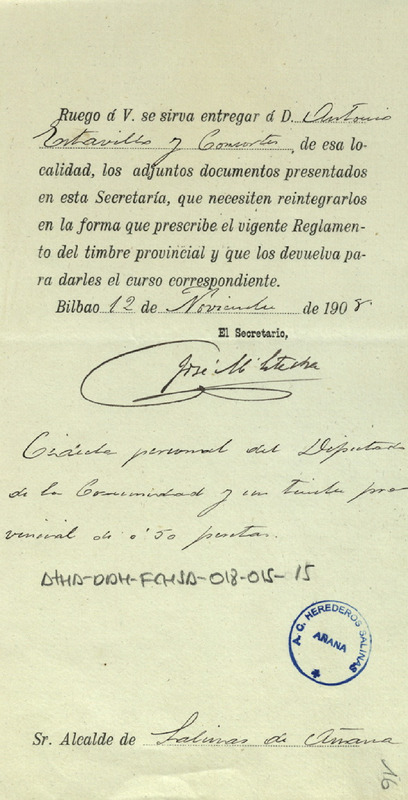 Ruego á V. se sirva entregar á D. Antonio
Estavillo y Consortes, de esa lo-
calidad, los adjuntos documentos presentados
en esta Secretaría, que necesiten reintegrarlos
en la forma que prescribe el vigente Reglamen-
to del timbre provincial y que los devuelva pa-
ra darles el curso correspondiente.
Bilbao 12 de Noviembre de 1908.
El Secretario,
José M.
Cédula personal del Diputado
de la Comunidad y un timbre pro
vincial de 0'50 pesetas.
ATHA-DAH-FCHSA-018-015-15
A. C. HEREDEROS SALINAS
AÑANA
Sr. Alcalde de Salinas de Añana
16